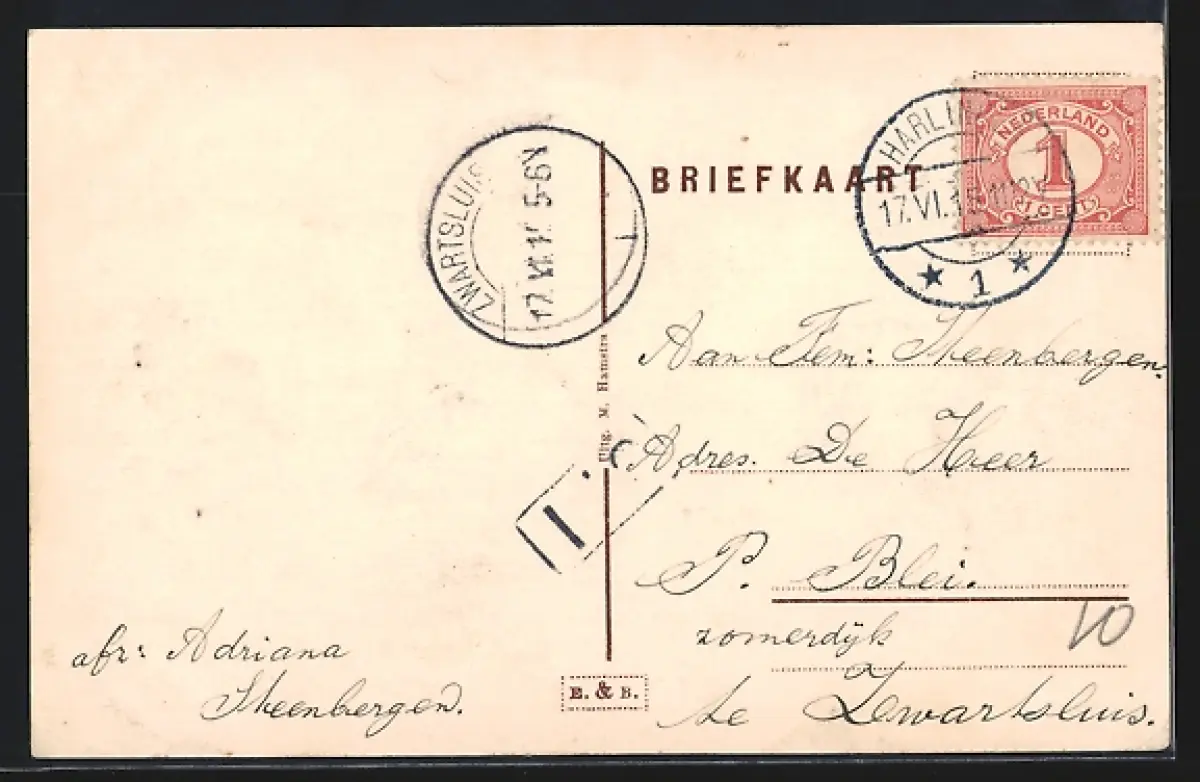 BRIEFKAART
NEDERLAND
1
1 CENT
HARLIN
17.VI.1
1
ZWARTSLUIS
17.VI.1 5-6N
Uitg. M. Hamstra
1
Aan Fem: Steenbergen.
Adres. De Heer
P. Blei.
zomerdijk
te Zwartsluis.
10
afr: Adriana
Steenbergen.
E. & B.